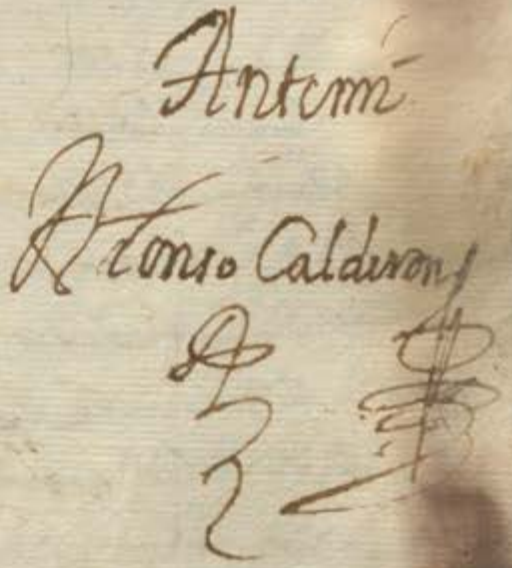 Ante mi
Alonso Calderon